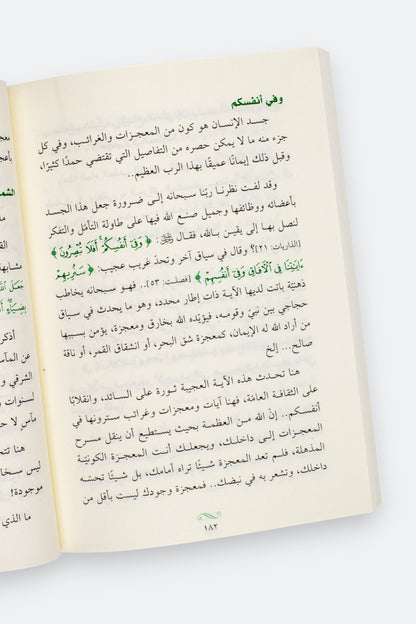 وفي أنفسكم
جسد الإنسان هو كون من المعجزات والغرائب، وفي كل
جزء منه ما لا يمكن حصره من التفاصيل التي تقتضي حمدًا كثيرًا،
وقبل ذلك إيمانًا عميقًا بهذا الرب العظيم..
وقد لفت نظرنا ربّنا سبحانه إلى ضرورة جعل هذا الجسد
بأعضائه ووظائفها وجميل صنع الله فيها على طاولة التأمّل والتفكر
لنصل بها إلى يقين بـالله، فقـال ﷻ: ﴿وَفِي أَنفُسِكُمْ أَفَلَا تُبْصِرُونَ﴾
[الذاريات: ٢١]؟ وقال في سياق آخر وتحدّ غريب عجيب: ﴿سَنُرِيهِمْ
ءَايَٰتِنَا فِي الْأَفَاقِ وَفِي أَنفُسِهِمْ﴾ [فصلت: ٥٣].. فهو سبحانه يخاطب
ذهنيّة باتت لديها الآية ذات إطار محدد، وهو ما يحدث في سياق
حجاجي بين نبيّ وقومـه، فيؤيّده الله بخارق ومعجزة، يؤمن بسببها
من أراد الله له الإيمان، كمعجزة شق البحر، أو انشقاق القمر، أو ناقة
صالح... إلخ
هنا تحـدث هذه الآيـة العجيبة ثـورة على السـائد، وانقلابًا
على الثقافـة العامّة، فهنا آيات ومعجزات وغرائب سترونها في
أنفسكم.. إنّ الله من العظمـة بحيث يستطيع أن ينقل مسـرح
المعجزات إلى داخلـك، ويجعلـك أنـت المعجـزة الكونيّـة
المذهلة، فلـم تعد المعجزة شـيئًا تراه أمامك، بل شيئًا تحسّـه
داخلك، وتشعر به في نبضك.. فمعجزة وجودك ليست بأقل من
١٨٢